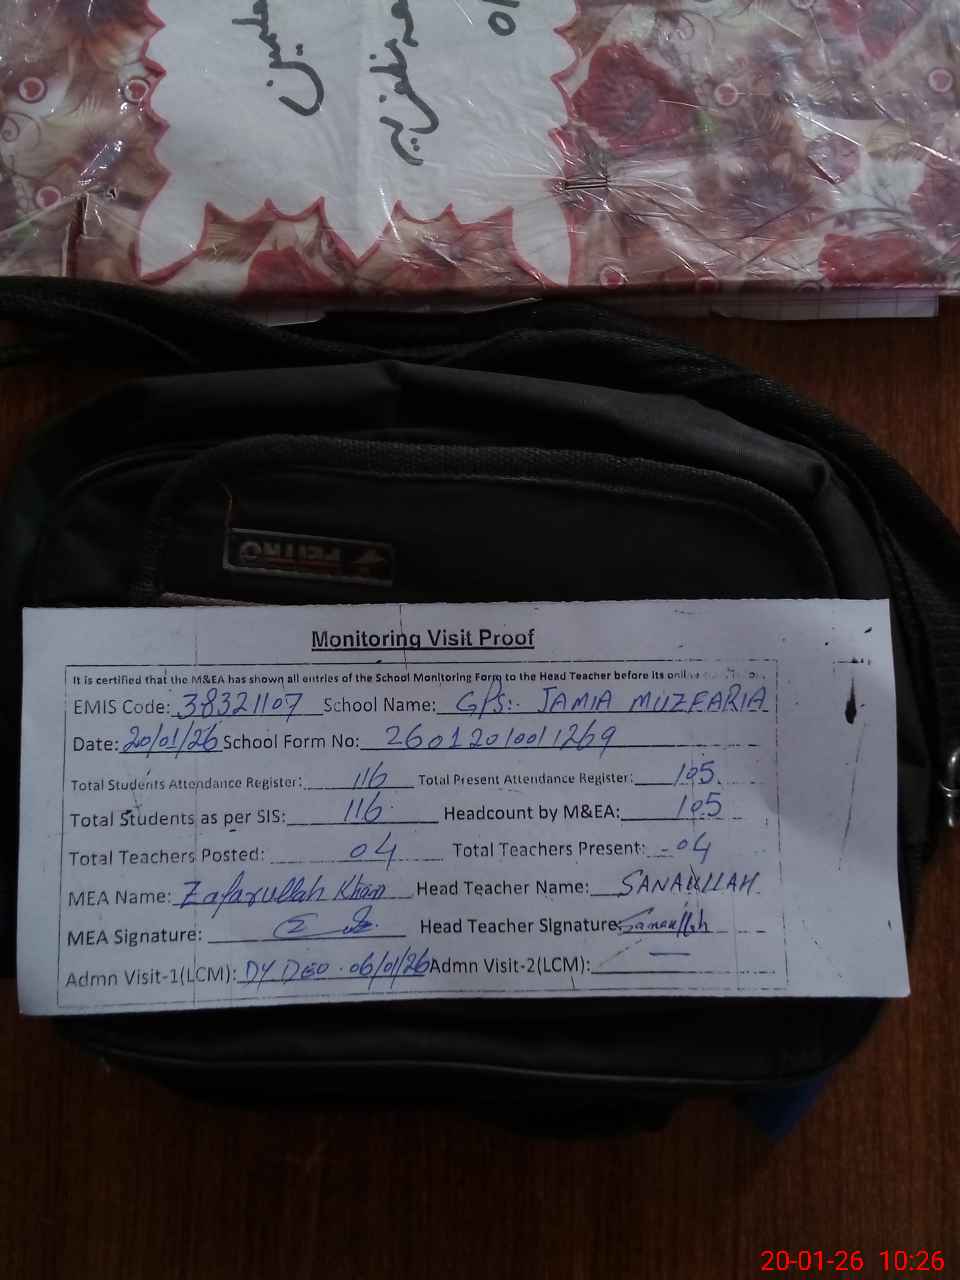 Monitoring Visit Proof
It is certified that the M&EA has shown all entries of the School Monitoring Form to the Head Teacher before its online
EMIS Code: 38321107 School Name: GPS:- JAMIA MUZFARIA
Date: 20/01/26 School Form No: 2601201001269
Total Students Attendance Register: 116 Total Present Attendance Register: 105
Total Students as per SIS: 116 Headcount by M&EA: 105
Total Teachers Posted: 04 Total Teachers Present: 04
MEA Name: Zafarullah Khan Head Teacher Name: SANAULLAH
MEA Signature: Head Teacher Signature: Sanaullah
Admn Visit-1(LCM): DY DEO . 06/01/26 Admn Visit-2(LCM): —
20-01-26 10:26